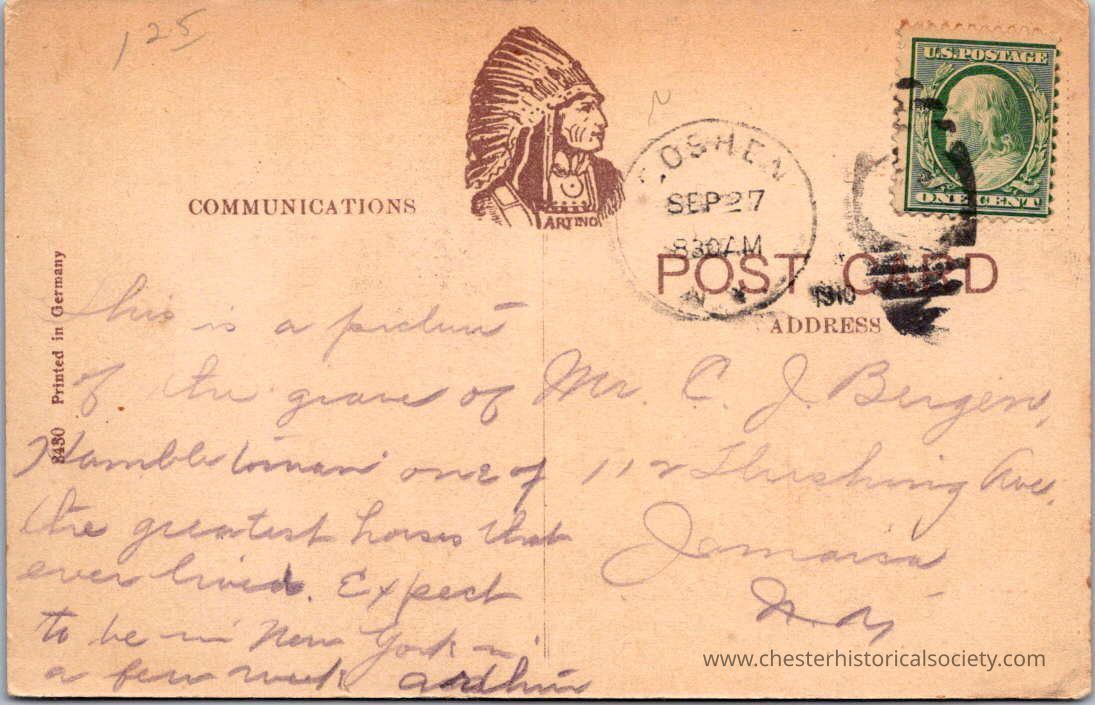 125
U.S. POSTAGE
ONE CENT
ARTINO
GOSHEN
SEP 27
830AM
N.Y.
1910
COMMUNICATIONS
POST CARD
ADDRESS
8430 Printed in Germany
This is a picture
of the grave of
Hambletonian one of
the greatest horses that
ever lived. Expect
to be in New York in
a few week Arthur
Mr. C. J. Bergen,
112 Flushing Ave,
Jamaica
N.Y.
www.chesterhistoricalsociety.com